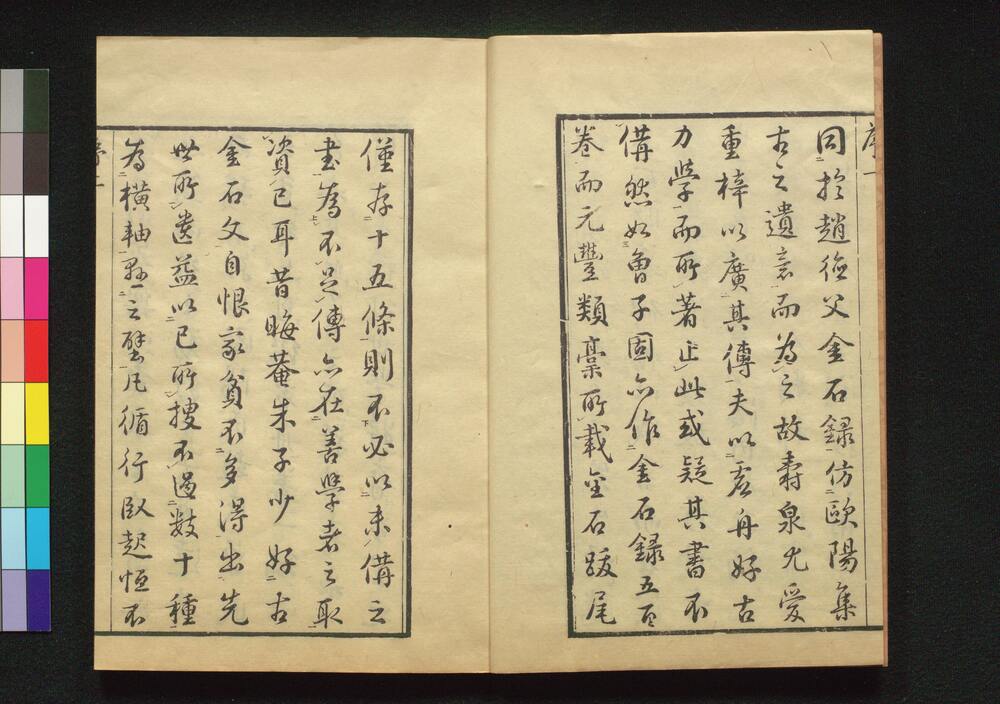 序一
同於趙德父金石録仿歐陽集
古之遺意而為之故壽泉尤愛
重梓以廣其傳夫以虚舟好古
力學而所著止此或疑其書不
備然如曾子固亦作金石録五百
卷而元豐類藁所載金石跋尾
僅存十五條則不必以未備之
書為不足傳亦在善學者之取
資已耳昔晦菴朱子少好古
金石文自恨家貧不多得出先
世所遺益以已所搜不過數十種
為橫軸懸之壁凡循行臥起恒不
序二